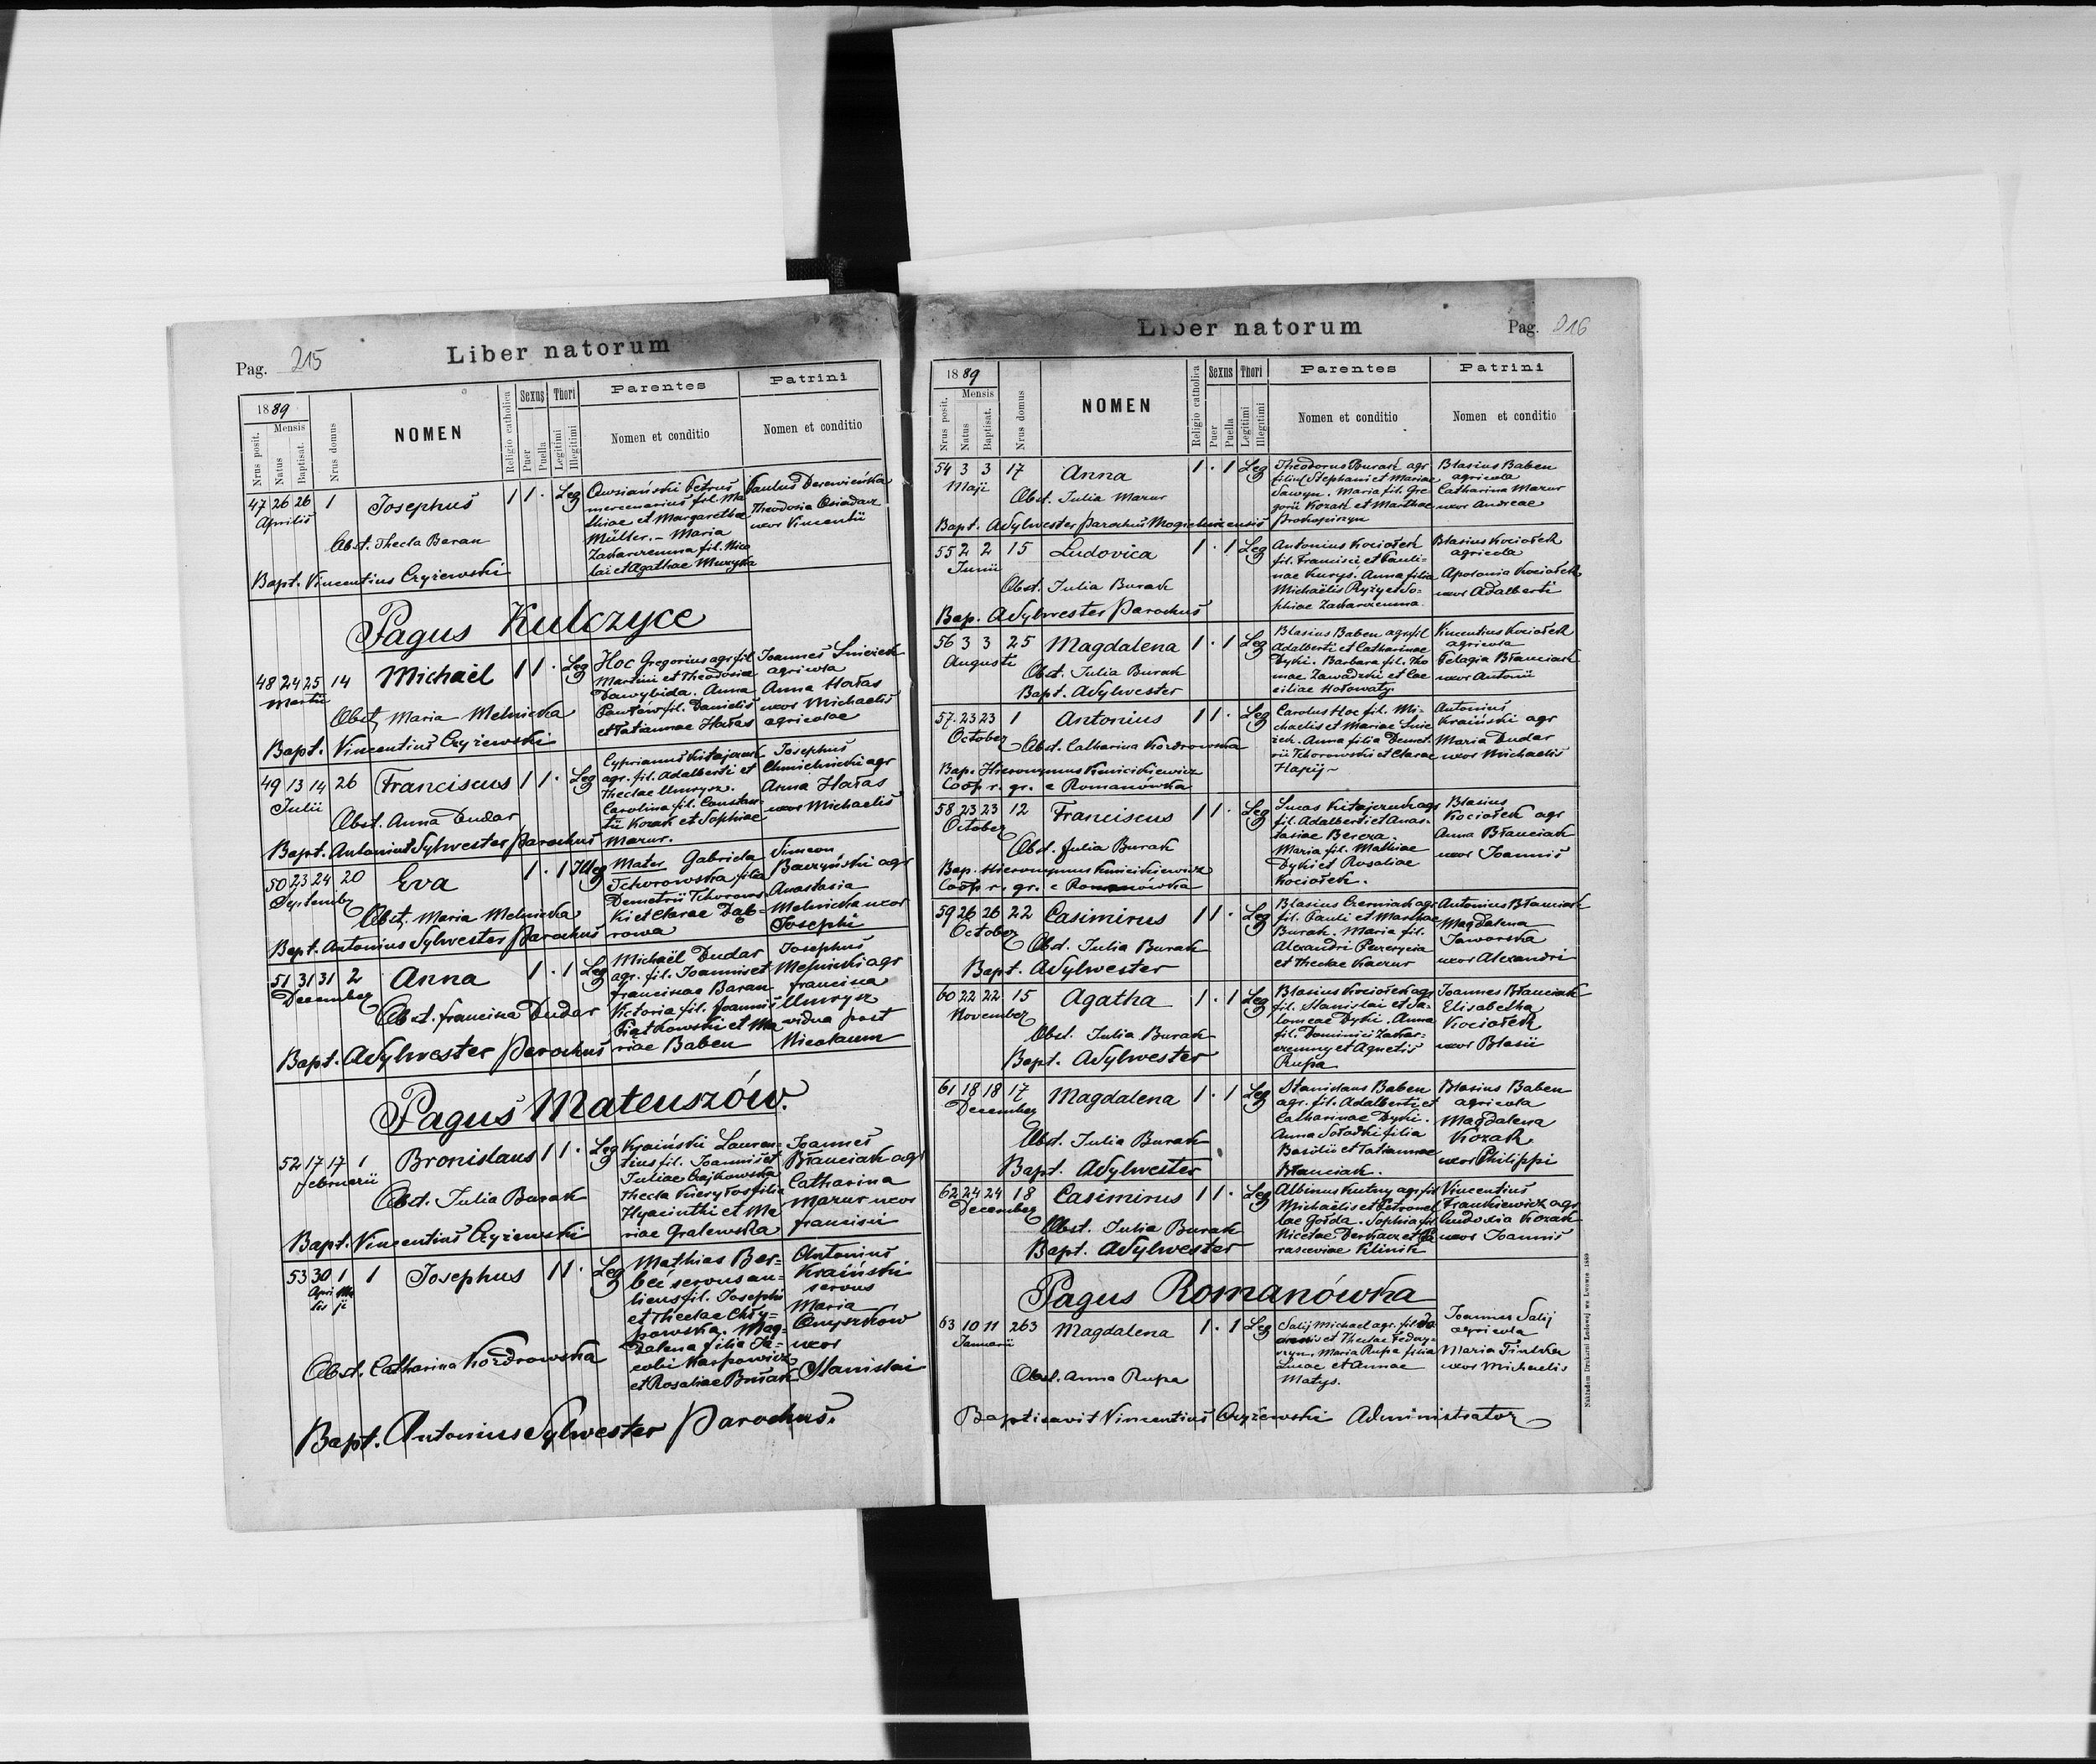 Pag. 215
Liber natorum
1889
Nrus posit.
Mensis
Natus
Baptisat.
Nrus domus
NOMEN
Religio catholica
Sexus
Puer
Puella
Thori
Legitimi
Illegitimi
Parentes
Nomen et conditio
Patrini
Nomen et conditio
47 26 26 1 Josephus 1 1 · Leg
Aprilis
Obst. Thecla Baran
Bapt. Vincentius Czyżewski
Owsiański Petrus
mercenarius fil. Ma
thiae et Margarethae
Müller. – Maria
Zacharzemna fil. Nico
lai et Agathae Muzyka
Paulus Derewieńka
Theodosia Osiadacz
uxor Vincentii
Pagus Kulczyce
48 24 25 14 Michaël 1 1 · Leg
Martii
Obst. Maria Melnicka
Bapt. Vincentius Czyżewski
Hoc Gregorius agr fil
Martini et Theodosiae
Dawybida. Anna
Pawłów fil. Danielis
et Tatiannae Hałas
Joannes Smiczek
agricola
Anna Hałas
uxor Michaelis
agricolae
49 13 14 26 Franciscus 1 1 · Leg
Julii
Obst. Anna Dudar
Bapt. Antonius Sylwester Parochus
Cyprianus Kitajczuk
agr. fil. Adalberti et
Theclae Umrysz.
Carolina fil. Constan
tii Kozak et Sophiae
Mazur.
Josephus
Chmielnicki agr
Anna Hałas
uxor Michaelis
50 23 24 20 Eva 1 · 1 Illeg
Septembr
Obst. Maria Melnicka
Bapt. Antonius Sylwester Parochus
Mater Gabriela
Tchorowska filia
Demetrii Tchorows
ki et Clarae Dąb-
rowa
Simeon
Baczyński agr
Anastasia
Melnicka uxor
Josephi
51 31 31 2 Anna 1 · 1 Leg
December
Obst. Francisca Dudar
Bapt. ASylwester Parochus
Michaël Dudar
agr. fil. Joannis et
Franciscae Baran
Victoria fil. Joannis
Piątkowski et Ma
riae Baben
Josephus
Melnicki agr
Francisca
Umrysz
vidua post
Nicolaum
Pagus Mateuszów.
52 17 17 1 Bronislaus 1 1 · Leg
Februarii
Obst. Julia Burak
Bapt. Vincentius Czyżewski
Kraiński Lauren=
tius fil. Joannis et
Juliae Czajkowska
Thecla filia
Hyacinthi et Ma
riae Gralewska
Joannes
Błauciak agr
Catharina
Mazur uxor
Francisci
53 30 1 1 Josephus 1 1 · Leg
Apri Ma
lis ji
Obst. Catharina Kozdrowska
Bapt. Antonius Sylwester Parochus.
Mathias Ber=
beć servus au=
licus fil. Josephi
et Theclae Chły=
powska. Mag=
dalena filia Ja=
cobi Karpowicz
et Rosaliae Burak
Antonius
Kraiński
servus
Maria
Onyszkow
uxor
Stanislai
Liber natorum
Pag. 216
1889
Nrus posit.
Mensis
Natus
Baptisat.
Nrus domus
NOMEN
Religio catholica
Sexus
Puer
Puella
Thori
Legitimi
Illegitimi
Parentes
Nomen et conditio
Patrini
Nomen et conditio
54 3 3 17 Anna 1 · 1 Leg
Maji
Obst. Julia Mazur
Bapt. ASylwester Parochus
Theodorus Burak agr
filius Stephani et Mariae
Sawyn. Maria fil. Gre
gorii Kozak et Marthae
Prokopiszyn
Blasius Baben
agricola
Catharina Mazur
uxor Andreae
55 2 2 15 Ludovica 1 · 1 Leg
Junii
Obst. Julia Burak
Bap. ASylwester Parochus
Antonius Kociołek
fil. Francisci et Pauli=
nae Kurys. Anna filia
Michaëlis Ryży et So=
phiae Zacharzemna
Blasius Kociołek
agricola
Apolonia Kociołek
uxor Adalberti
56 3 3 25 Magdalena 1 · 1 Leg
Augusti
Obst. Julia Burak
Bapt. ASylwester
Blasius Baben agr fil
Adalberti et Catharinae
Dyki. Barbara fil. Tho
mae Zawadzki et Cae
ciliae Hołowaty.
Vincentius Kociołek
agricola
Pelagia Błauciak
uxor Antonii
57. 23 23 1 Antonius 1 1 · Leg
October
Obst. Catharina Kozdrowska
Bap. Hieronymus
Coop r. gr. e Romanówka
Carolus Hoc fil. Mi=
chaelis et Mariae Smic
zek. Anna filia Demet.
rii Tchorowski et Clarae
Antonius
Kraiński agr
Maria Dudar
uxor Michaelis
58 23 23 12 Franciscus 1 1 · Leg
October
Obst. Julia Burak
Bap. Hieronymus
Coop r. gr. e Romanówka
Lucas Kitajczuk agr
fil. Adalberti et Anas=
tasiae Bereza.
Maria fil. Mathiae
Dyki et Rosaliae
Kociołek.
Blasius
Kociołek agr
Anna Błauciak
uxor Joannis
59 26 26 22 Casimirus 1 1 · Leg
October
Obst. Julia Burak
Bapt. ASylwester
Blasius Czerniak agr
fil. Pauli et Marthae
Burak. Maria fil.
Alexandri
et Theclae Kaczur
Antonius Błauciak
Magdalena
Jaworska
uxor Alexandri
60 22 22 15 Agatha 1 · 1 Leg
November
Obst. Julia Burak
Bapt. ASylwester
Blasius Kociołek agr
fil. Stanislai et Sa=
lomeae Dyki. Anna
fil. Dominici Zachar=
zemny et Agnetis
Rupa
Joannes Błauciak
Elisabetha
Kociołek
uxor Blasii
61 18 18 17 Magdalena 1 · 1 Leg
December
Obst. Julia Burak
Bapt. ASylwester
Stanislaus Baben
agr. fil. Adalberti et
Catharinae Dyki.
Anna Sołodki filia
Basilii et Tatiannae
Błauciak.
Blasius Baben
agricola
Magdalena
Kozak
uxor Philippi
62 24 24 18 Casimirus 1 1 · Leg
December
Obst. Julia Burak
Bapt. ASylwester
Albinus Kutny agr fil
Michaëlis et Petronel
lae Gołda. Sophia fil
Nicetae Derkacz et Pa
rasceviae Klinik
Vincentius
Frankiewicz agr
Eudoxia Kozak
uxor Joannis
Pagus Romanówka
63 10 11 263 Magdalena 1 · 1 Leg
Januarii
Obst. Anna Rupa
Baptisavit Vincentius Czyżewski Administrator
Salij Michael agr. fil
et Theclae Fedwy=
szyn. Maria Rupa filia
Lucae et Annae
Matys.
Joannes Salij
agricola
Maria
uxor Michaelis
Nakładem Drukarni Ludowej we Lwowie 1889